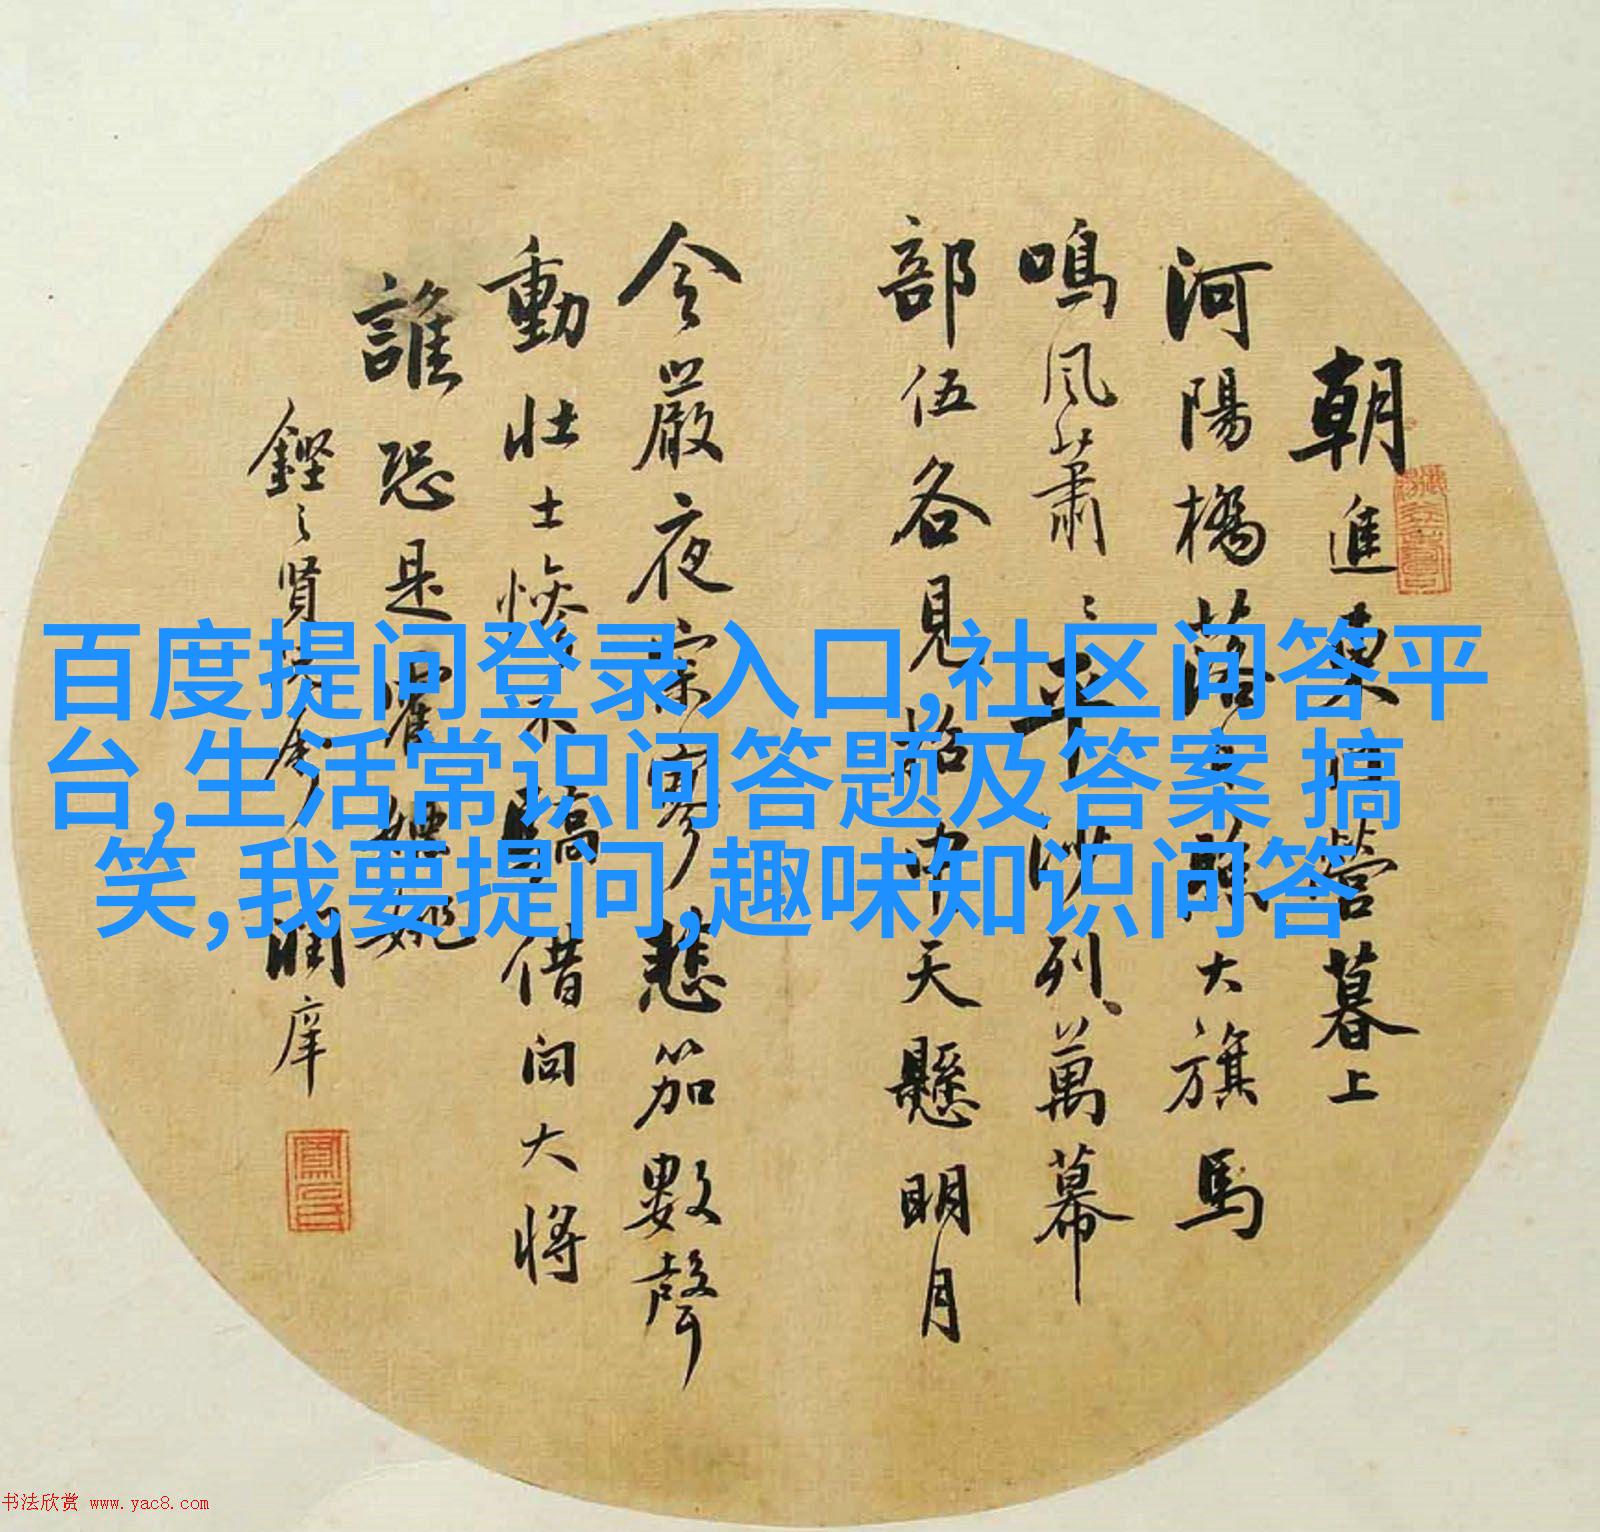 百度提问登录入口,社区问答平
台,生活常识问答题及答案 搞
笑,我要提问,趣味知识问答
朝進東門營暮上
河陽橋落日照大旗馬
鳴風蕭〻平沙列萬幕
部伍各見招中天懸明月
令嚴夜寂寥悲笳數聲
動壯士慘不驕借問大將
誰恐是霍嫖姚
賢 潤庠
书法欣赏 www.yac8.com